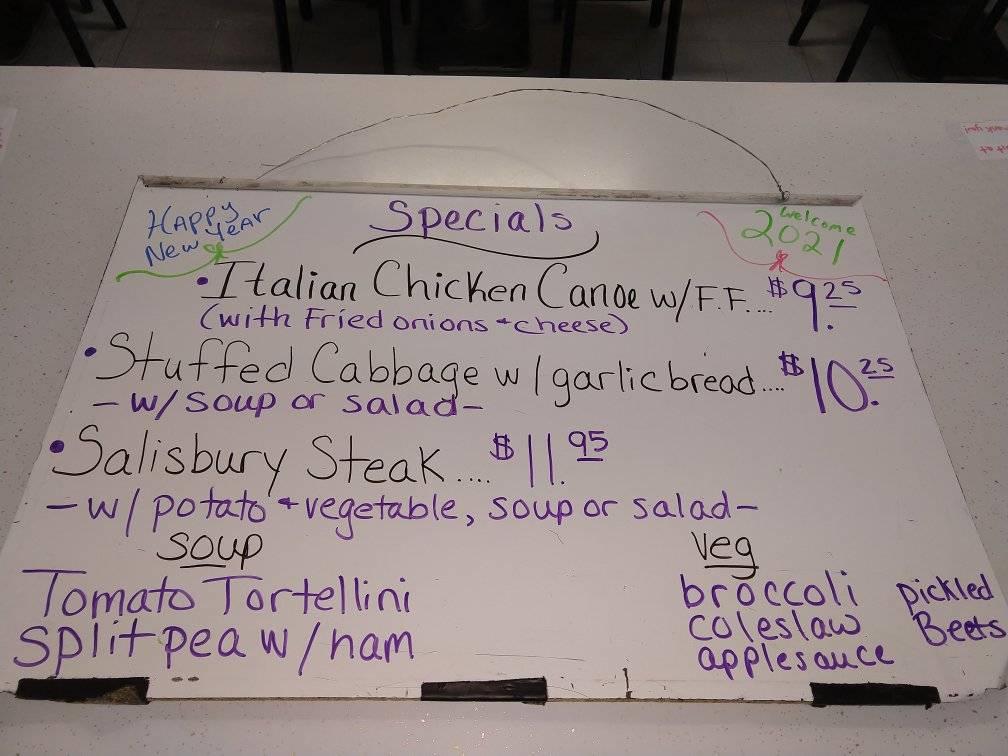 HAPPY
New YEAR
Specials
Welcome
2021
• Italian Chicken Canoe w/ F.F.... $9.25
(with Fried onions + cheese)
• Stuffed Cabbage w/ garlic bread.... $10.25
- w/ soup or salad -
• Salisbury Steak.... $11.95
- w/ potato + vegetable, soup or salad -
soup
Tomato Tortellini
split pea w/ ham
veg
broccoli
coleslaw
applesauce
pickled
Beets